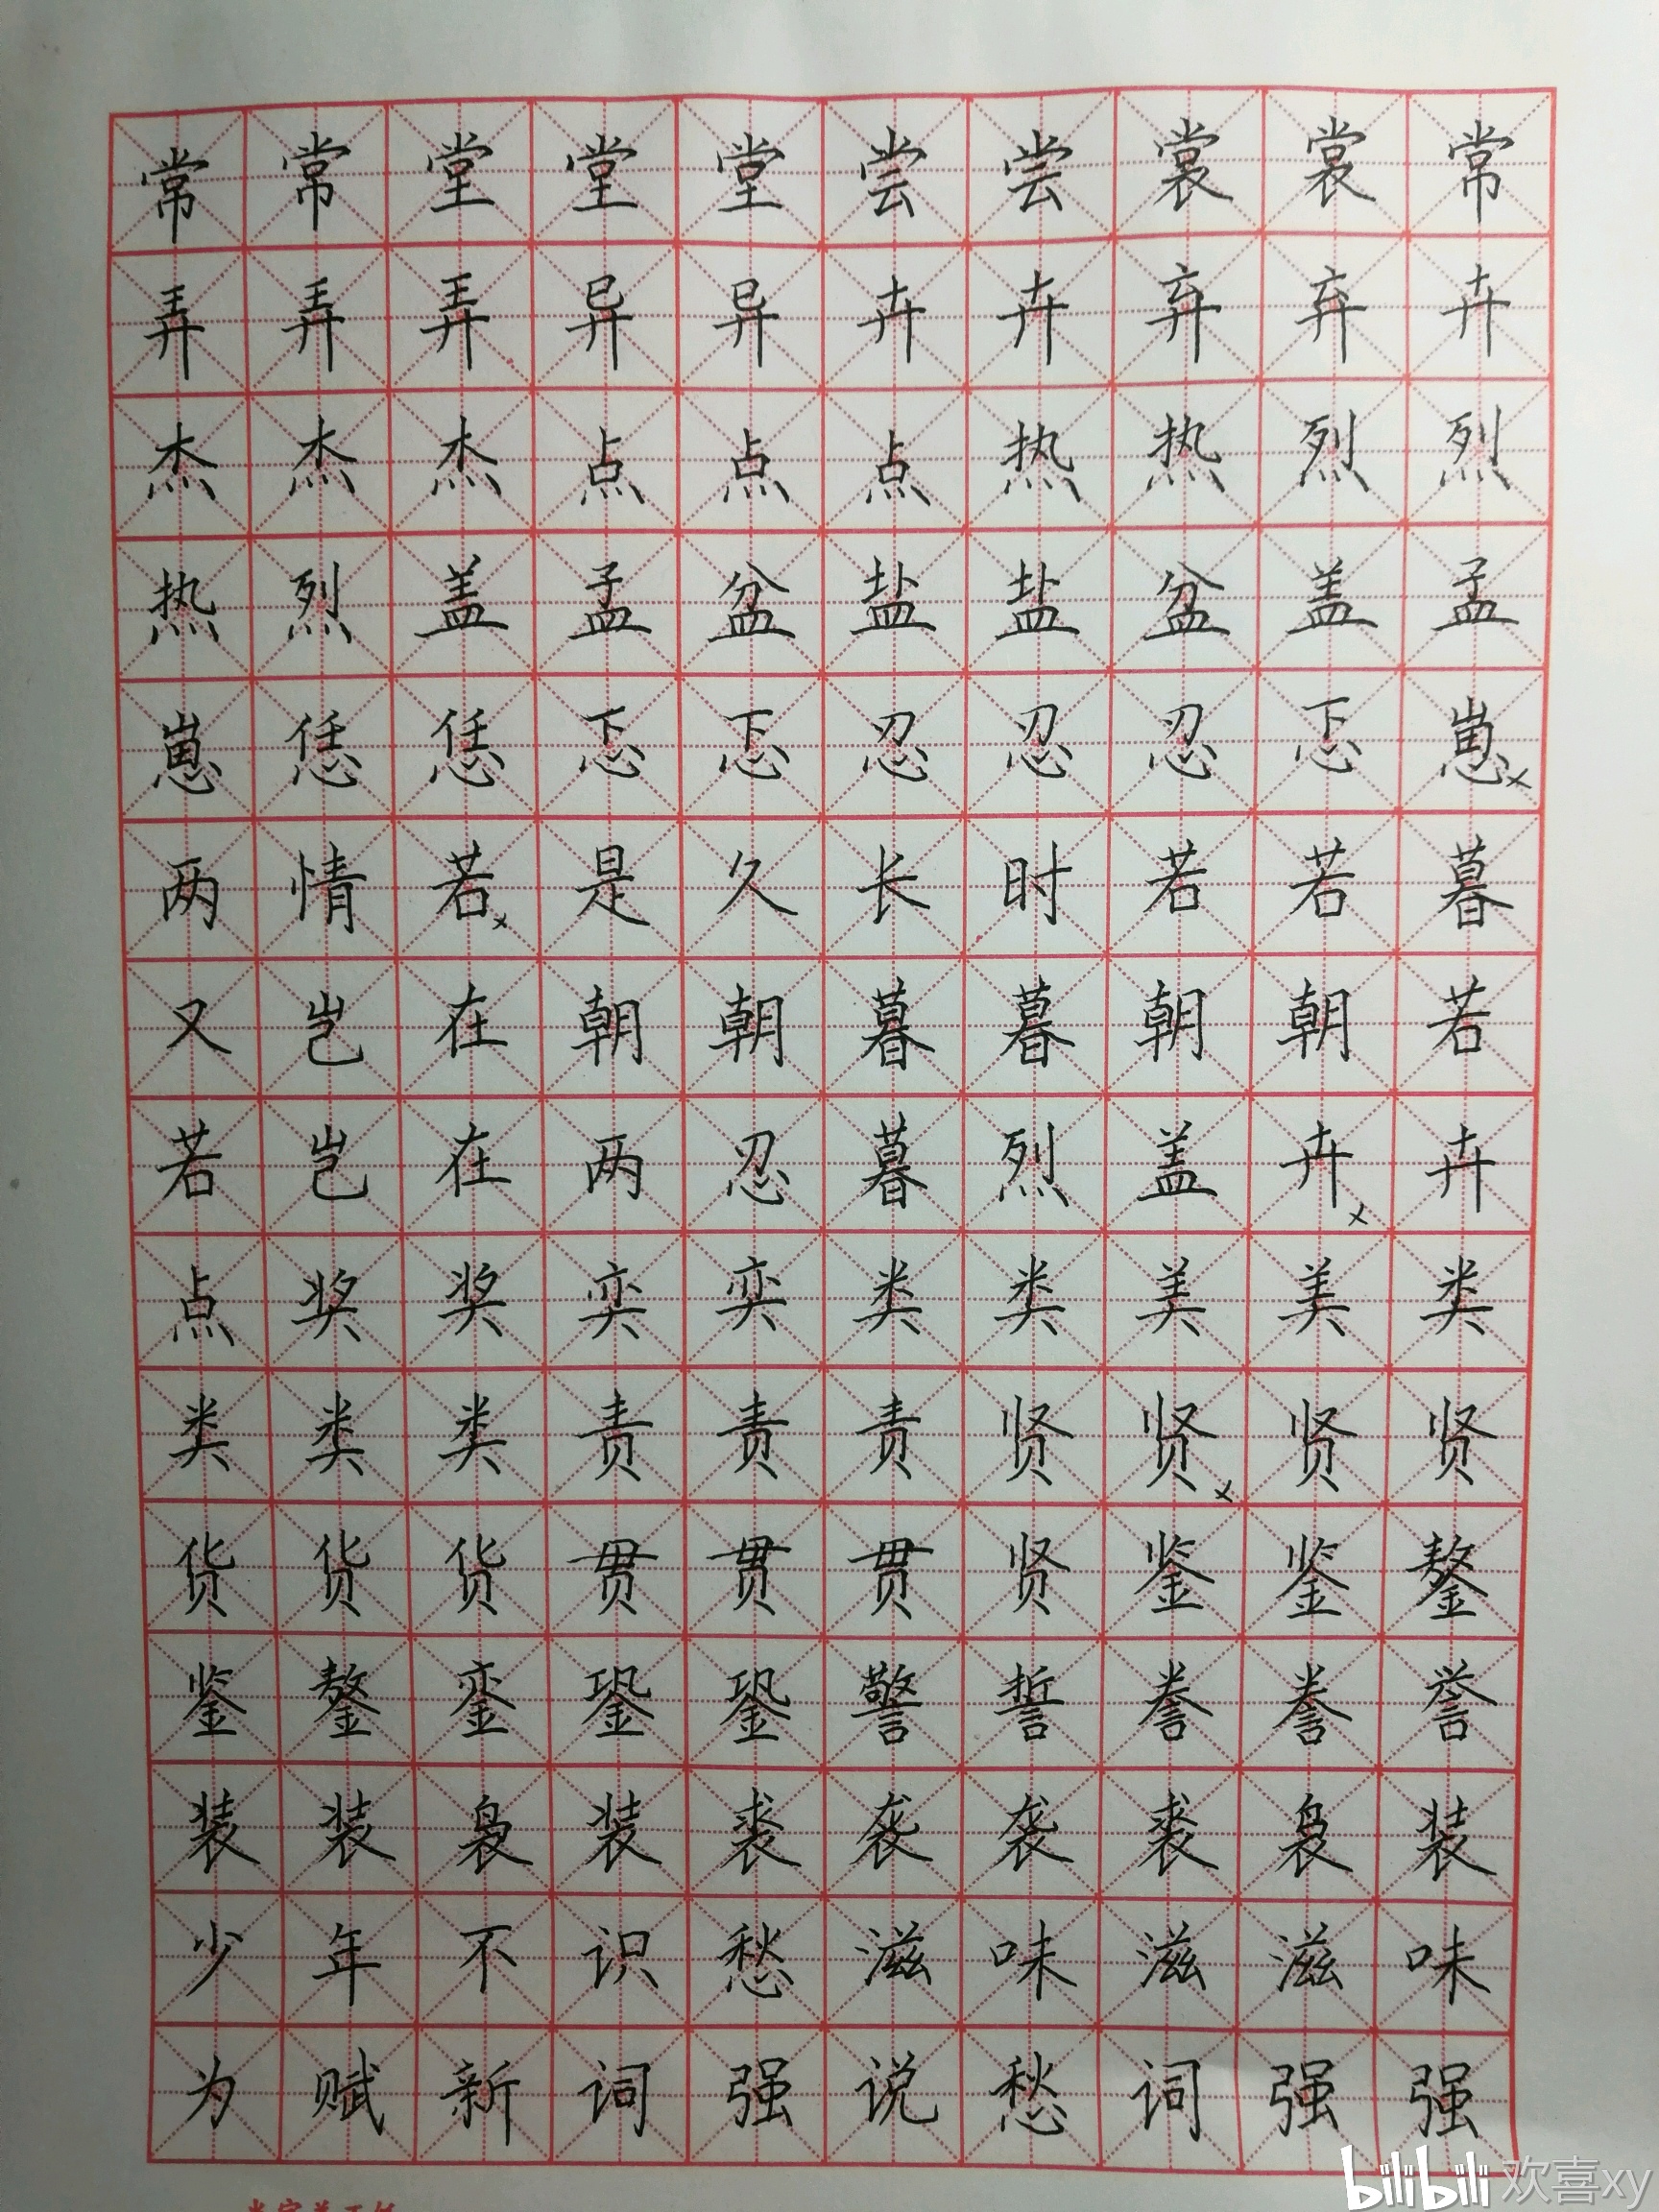 常常堂堂堂尝尝裳裳常
弄弄弄异异卉卉弃弃卉
杰杰杰点点点热热烈烈
热烈盖孟盆盐盐盆盖孟
崽恁恁忑忑忍忍忍忑崽
两情若是久长时若若暮
又岂在朝朝暮暮朝朝若
若岂在两忍暮烈盖卉卉
点奖奖奕奕类类美美类
类类类责责责贤贤贤贤
货货货贯贯贯贤鉴鉴鏊
鉴鏊銮銎銎警誓誊誊誉
装装袅装裘袭袭裘袅装
少年不识愁滋味滋滋味
为赋新词强说愁词强强
bilibili 欢喜xy